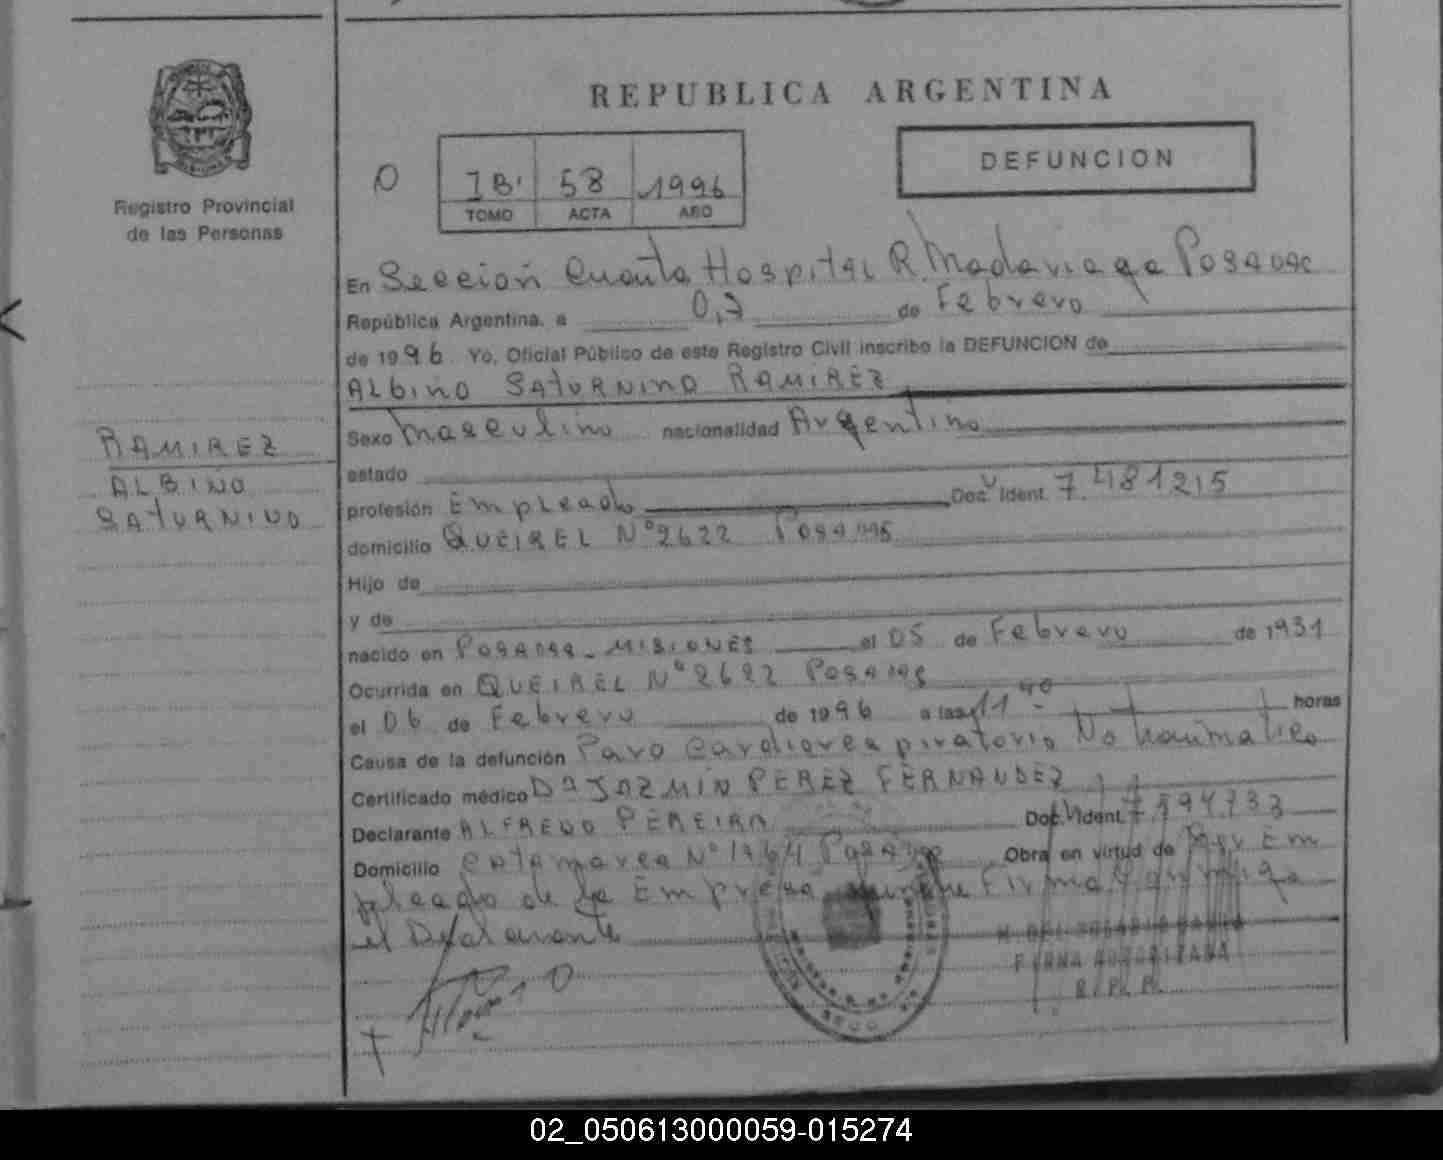 REPUBLICA ARGENTINA
DEFUNCION
1B' 58 1996
TOMO ACTA AÑO
Registro Provincial
de las Personas
En Sección Cuarta Hospital R. Madariaga Posadas
República Argentina, a 0,7 de Febrero
de 1996 Yo, Oficial Público de este Registro Civil inscribo la DEFUNCION de
ALbiNO SATURNINO RAMIREZ
Sexo Masculino nacionalidad Argentino
RAMIREZ
ALBINO
SATURNINO
estado
profesión Empleado Doc. Ident. 7.481215
domicilio QUEIREL Nº 2622 Posadas
Hijo de
y de
nacido en POSADAS - MISIONES el 05 de Febrero de 1931
Ocurrida en QUEIREL Nº 2622 Posadas
el 06 de Febrero de 1996 a las 11 40 horas
Causa de la defunción Paro Cardiorespiratorio No traumatico
Certificado médico Dª JAZMIN PEREZ FERNANDEZ
Declarante ALFREDO PEREIRA Doc. Ident. 7594733
Domicilio Catamarca Nº 1964 Posadas Obra en virtud de Ser Em
pleado de la Empresa Funebre Firma Conmigo
el Declarante
FIRMA AUTORIZADA
R. P. P.
02_050613000059-015274